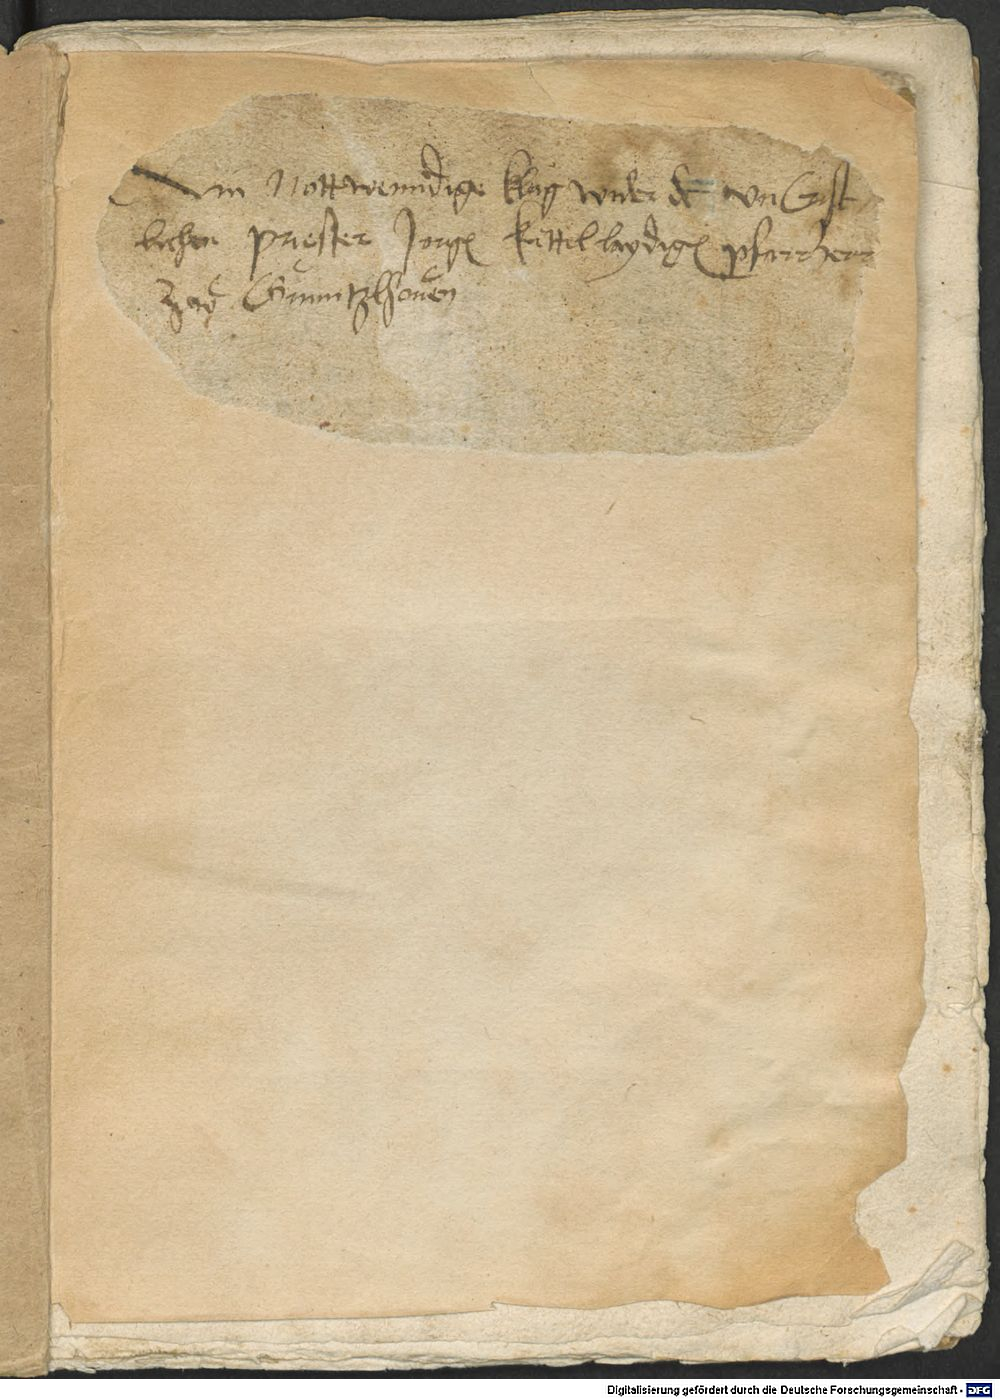 Ain Nottwenndige klag wider dē unCrist
lichen priester Jorg Kittellaydig pfarrherr
zuo Gumitzlhouen
Digitalisierung gefördert durch die Deutsche Forschungsgemeinschaft - DFG